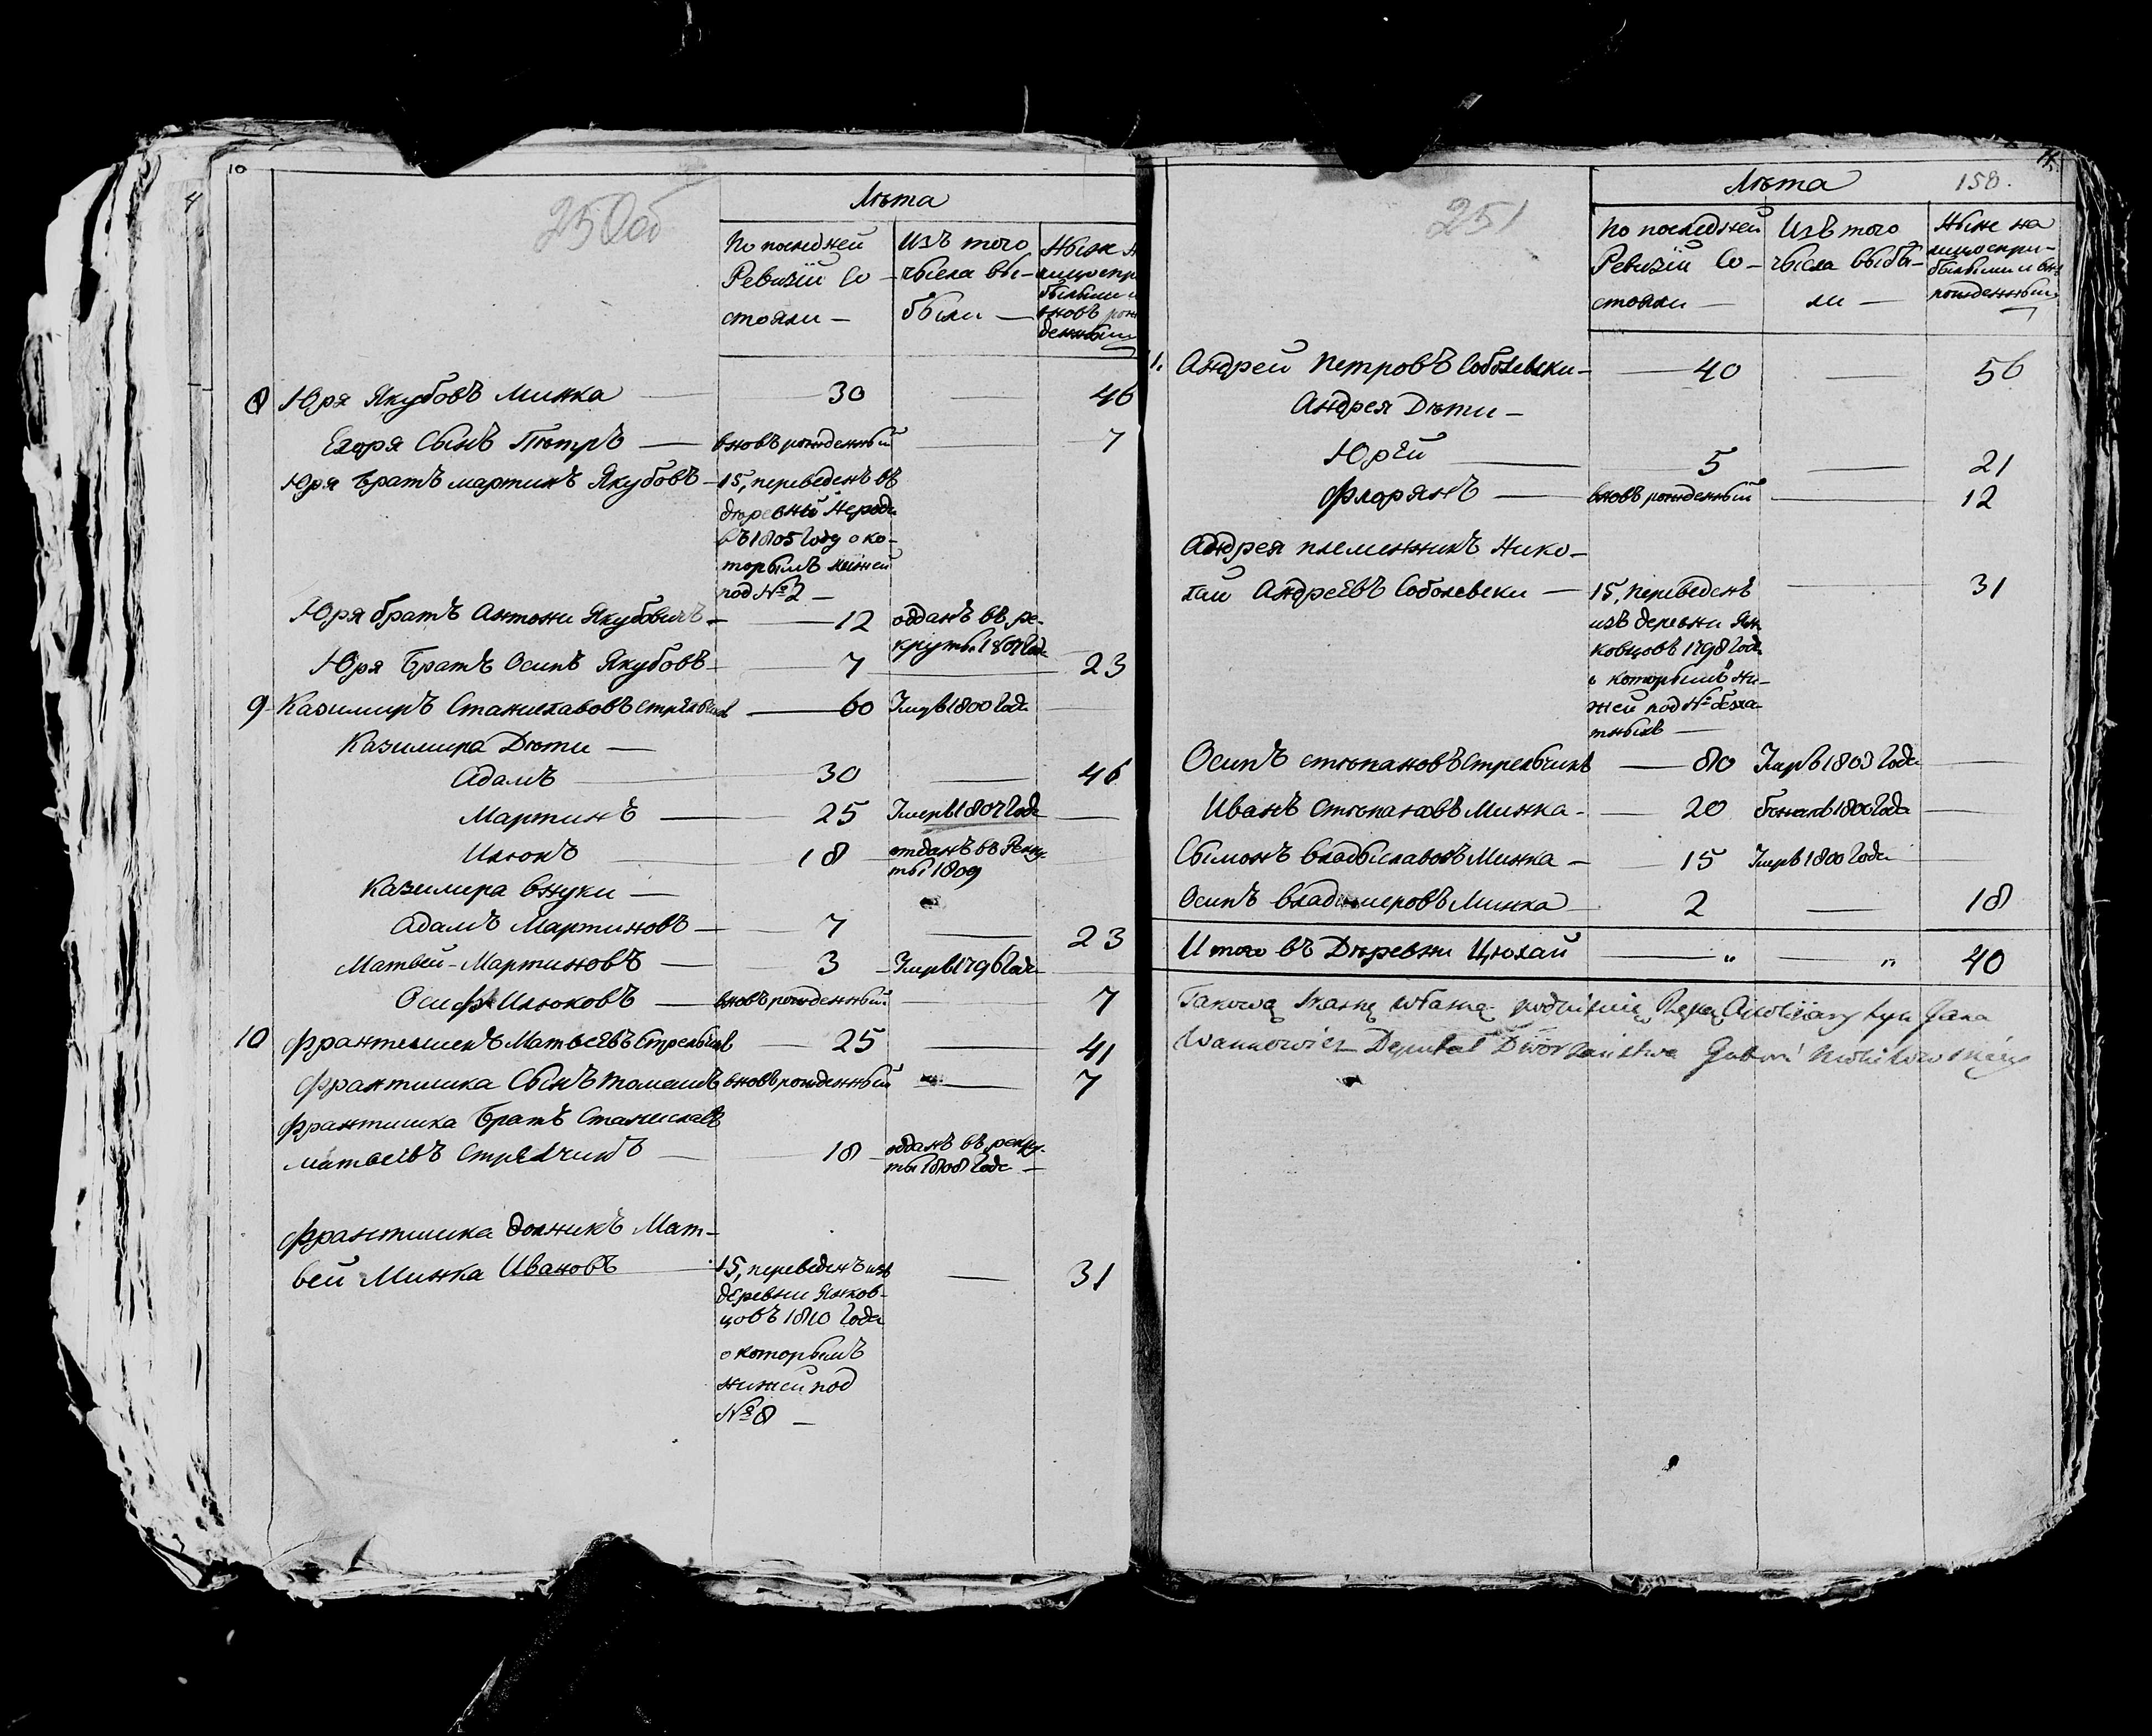 10
4
250об
Лѣта
По последней
Ревизіи Со-
стояли —
Изъ того
числа вы-
были —
вновь рож
денными
8 Юря Якубовъ Минка 30 46
Егоря Сынъ Піотръ — вновь рожденный 7
Юря Братъ мартинъ Якубовъ — 15, переведенъ въ
въ 1805 Году о ко-
торымъ
под № 2 —
Юря братъ Антони Якубовичъ — 12 одданъ въ ре-
круты 1807 Года
Юря Братъ Осипъ Якубовъ 7 23
9 Казимиръ Станиславовъ 60 Умръ 1800 Года
Казимира Дѣти —
Адамъ 30 46
Мартинъ — 25 Умеръ 1807 Года
18 отданъ въ Рекру
ты 1809
Казимира внуки —
Адамъ Мартиновъ — 7 23
Матвей Мартиновъ — 3 Умръ 1796 Года
Осиф Илюковъ — вновь рожденный 7
10 Матвеевъ 25 41
Франтишка Сынъ томашъ вновь рожденный 7
Франтишка Братъ Станиславъ
матвеевъ 18 одданъ въ рекру-
ты 1808 Года —
Франтишка Мат-
вей Минка Ивановъ 15, переведенъ изъ 31
деревни Янков-
цовъ 1810 Года
о которымъ
нижей под
№ 8 —
251
158.
Лѣта
По последней
Ревизіи Со-
стояли —
Изъ того
числа выбы-
ли —
Ныне на
рожденными
Андрей Петровъ Соболевски — 40 — 56
Андрея Дѣти —
Юрій 5 — 21
Флорянъ — вновь рожденный 12
Андрея племенникъ Нико-
лай Андреевъ Соболевски — 15, переведенъ 31
изъ деревни Ян
ковцовъ 1798 Года
о которымъ ни-
жей под №
Осипъ стѣпановъ 80 Умръ 1803 Года
Иванъ Стѣпановъ Минка — 20 1800 Года
Сымонъ владыславовъ Минка — 15 Умръ 1800 Года
Осипъ владимеровъ Минка 2 — 18
Итого въ Дѣревни Цюхай " " 40
Takową własną
Wankowicz Deputat Dworzaństwa